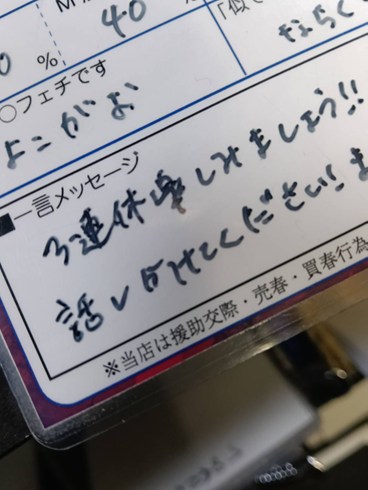 40
%
「似て
ならく
○フェチです
よこがお
■一言メッセージ
3連休楽しみましょう!!
話しかけてくださいにま
※当店は援助交際・売春・買春行為